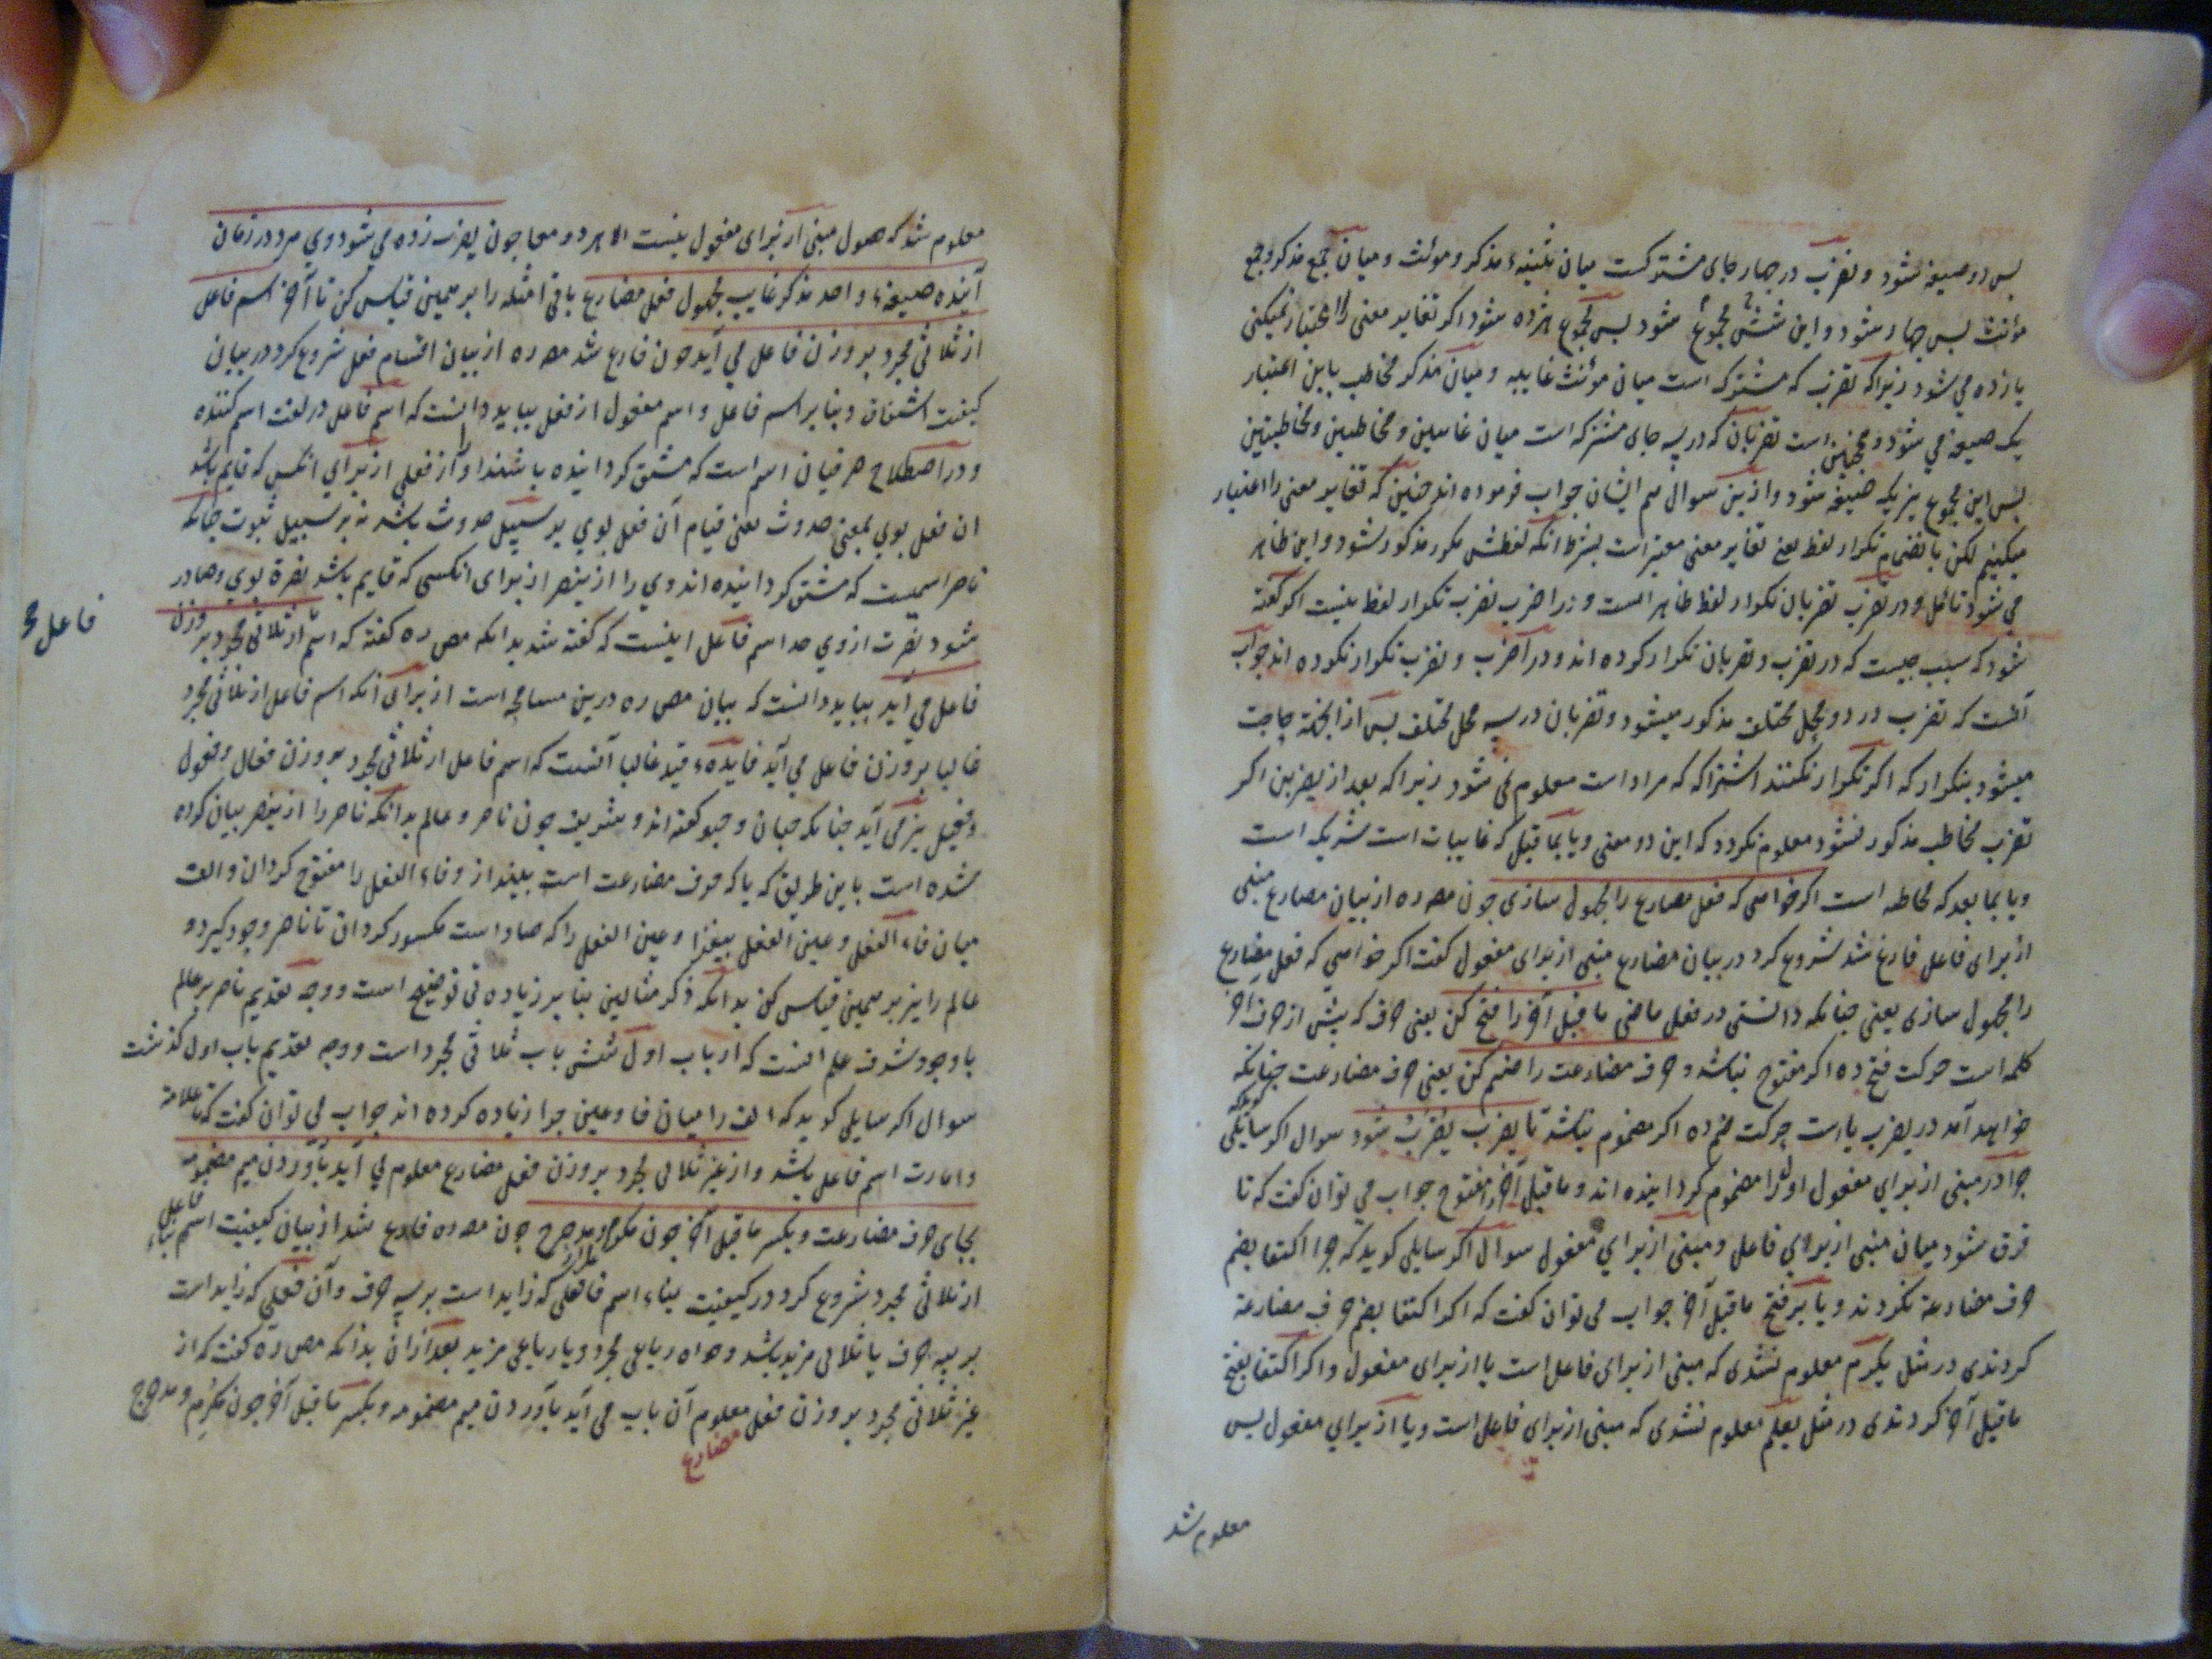 بس دو صیغه نشود و تضرب در چهار جای مشترکست میان تثنیهٔ مذکر و مونث و میان جمع مذکر و جمع
مؤنث بس چهار شود و این شش مجموع شود بس مجموع هژده شود اکر تغایر معنی را اعتبار نمیکنی
یازده می شود زیراکه تضرب که مشترکه است میان مونث غایبه و میان مذکر مخاطب باین اعتبار
یک صیغه می شود و همچنین است تضربان که در سه جای مشترکه است میان غایبتین و مخاطبین و مخاطبتین
بس این مجموع نیز یک صیغه شود و ازین سوال هم ایشان جواب فرموده اند چنین که تغایر معنی را اعتبار
میکنیم لکن بانضمام تکرار لفظ یعنی تغایر معنی معتبر است بشرط انکه لفظش مکرر مذکور شود و این ظاهر
می شود تأمل و در تضرب تضربان تکرار لفظ ظاهر است و در اضرب نضرب تکرار لفظ نیست اکر کفته
شود که سبب چیست که در تضرب و تضربان تکرار کرده اند و در اضرب و نضرب تکرار نکرده اند جواب
آنست که تضرب در دو محل مختلف مذکور میشود و تضربان در سه محل مختلف بس از انجهة حاجت
میشود بتکرار که اکر تکرار نکنند اشتراکه که مراد است معلوم نمی شود زیراکه بعد از یضربن اکر
تضرب مخاطب مذکور نشود معلوم نکردد که این دو معنی و یا بما قبل که غایبات است شریک است
و یا بما بعد که مخاطبه است اکر خواهی که فعل مضارع را مجهول سازی چون مصره از بیان مضارع مبنی
از برای فاعل فارغ شد شروع کرد در بیان مضارع مبنی از برای مفعول کفت اکر خواهی که فعل مضارع
را مجهول سازی یعنی چنانکه دانستی در فعل ماضی ما قبل آخر را فتح کن یعنی حرف که پیش از حرف آخر
کلمه است حرکت فتح ده اکر مفتوح نباشد و حرف مضارعت را ضم کن یعنی حرف مضارعت چنانکه
خواهد آمد در یضرب یا است حرکت ضم ده اکر مضموم نباشد تا یضرب یضرب شود سوال اکر سایلی کوید که
چرا در مبنی از برای مفعول اول را مضموم کردانیده اند و ما قبل آخر را مفتوح جواب می توان کفت که تا
فرق شود میان مبنی از برای فاعل و مبنی از برای مفعول سوال اکر سایلی کوید که چرا اکتفا بضم
حرف مضارعة نکردند و یا بر فتح ما قبل آخر جواب می توان کفت که اکر اکتفا بضم حرف مضارعة
کردندی در مثل یکرم معلوم نشدی که مبنی از برای فاعل است یا از برای مفعول و اکر اکتفا بفتح
ما قبل آخر کردندی در مثل یعلم معلوم نشدی که مبنی از برای فاعل است و یا از برای مفعول بس
معلوم شد
معلوم شد که حصول مبنی از برای مفعول نیست الا بهر دو معا چون یضرب زده می شود وی مرد در زمان
آینده صیغهٔ واحد مذکر غایب مجهول فعل مضارع باقی امثله را بر همین قیاس کن تا آخر اسم فاعل
از ثلاثی مجرد بر وزن فاعل می آید چون فارغ شد مصره از بیان اقسام فعل شروع کرد در بیان
کیفیت اشتقاق و بنا بر اسم فاعل و اسم مفعول از فعل بباید دانست که اسم فاعل در لغت اسم کننده
و در اصطلاح صرفیان اسم است که مشتق کردانیده باشند او را از فعلی از برای انکس که قایم باشد
ان فعل بوی بمعنی حدوث یعنی قیام آن فعل بوی بر سبیل حدوث باشد نه بر سبیل ثبوت چنانکه
ناصر اسمیست که مشتق کردانیده اند وی را از ینصر از برای انکسی که قایم باشد نصرة بوی و صادر
شود نصرت از وی حد اسم فاعل اینست که کفته شد بدانکه مصره کفته که اسم از ثلاثی مجرد بر وزن
فاعل می آید بباید دانست که بیان مصره درین مسامحه است از برای آنکه اسم فاعل از ثلاثی مجرد
غالبا بر وزن فاعل می آید فایدهٔ قید غالبا آنست که اسم فاعل از ثلاثی مجرد بر وزن فعال و فعول
و فعیل نیز می آید چنانکه جبان و صبور کفته اند و شریف چون ناصر و عالم بدانکه ناصر را از ینصر بیان کرده
شده است باین طریق که یا که حرف مضارعت است بینداز و فاء الفعل را مفتوح کردان و الف
میان فاء الفعل و عین الفعل بیفزا و عین الفعل را که صاد است مکسور کردان تا ناصر وجود کیرد و
عالم را نیز بر همین قیاس کن بدانکه ذکر مثالین بنا بر زیاده تی توضیح است و وجه تقدیم ناصر بر عالم
با وجود شرف علم انست که از باب اول شش باب ثلاثی مجرد است و وجه تقدیم باب اول کذشت
سوال اکر سایلی کوید که الف را میان فا و عین چرا زیاده کرده اند جواب می توان کفت که تا علامة
و امارت اسم فاعل باشد و از غیر ثلاثی مجرد بر وزن فعل مضارع معلوم می آید بآوردن میم مضمومه
بجای حرف مضارعت و بکسر ما قبل آخر چون مکرم و مدحرج چون مصره فارغ شد از بیان کیفیت بناء اسم فاعل
از ثلاثی مجرد شروع کرد در کیفیت بناء اسم فاعلی که زاید است بر سه حرف و آن فعلی که زاید است
بر سه حرف یا ثلاثی مزید باشد و خواه رباعی مجرد و یا رباعی مزید بعد ازان بدانکه مصره کفت که از
غیر ثلاثی مجرد بر وزن فعل معلوم آن باب می آید بآوردن میم مضمومه و بکسر ما قبل آخر چون مکرم و مدحرج
مضارع
فاعل